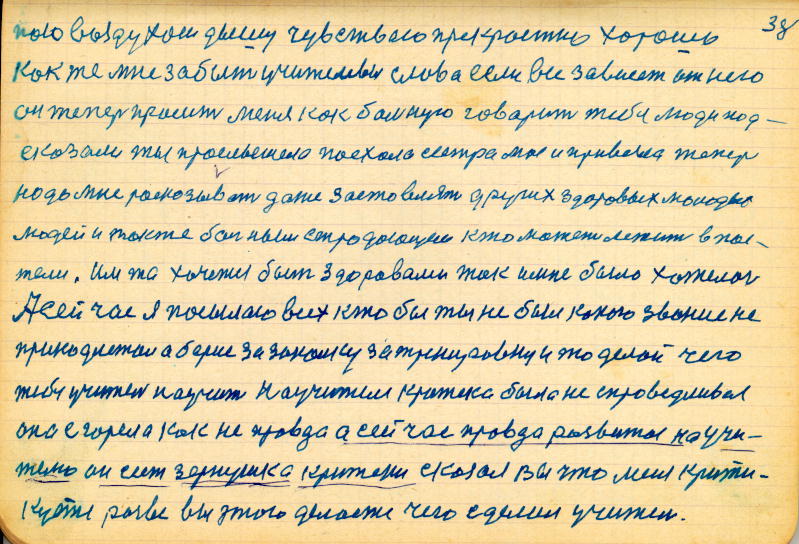 38
пою воздухом дышу чувствою прекрастно хорошо
кокже мне забыт учителевы слова если все зависет от него
он тепер просит меня как болную говорит тебя люди под-
сказали ты прослышела поехала сестра моя и привезла тепер
нодо мне росказыват даже заставлят других здоровых молодых
людей и также болными страдающеи кто может лежит в пос-
тели. Им то хочетця быт здоровами так и мне было хотелос
А сей час я посылаю всех кто бы ты не был какого звание не
приходлежал а берис за закалку за тренировку и то делой чего
тебя учител научит На учителя критека была не справедливая
она сгорела как не правда а сей час правда развитая на учи-
теля он сеет зернушка критеки сказал Вы что меня крити-
куете разве вы этого делаете чего сделал учител.